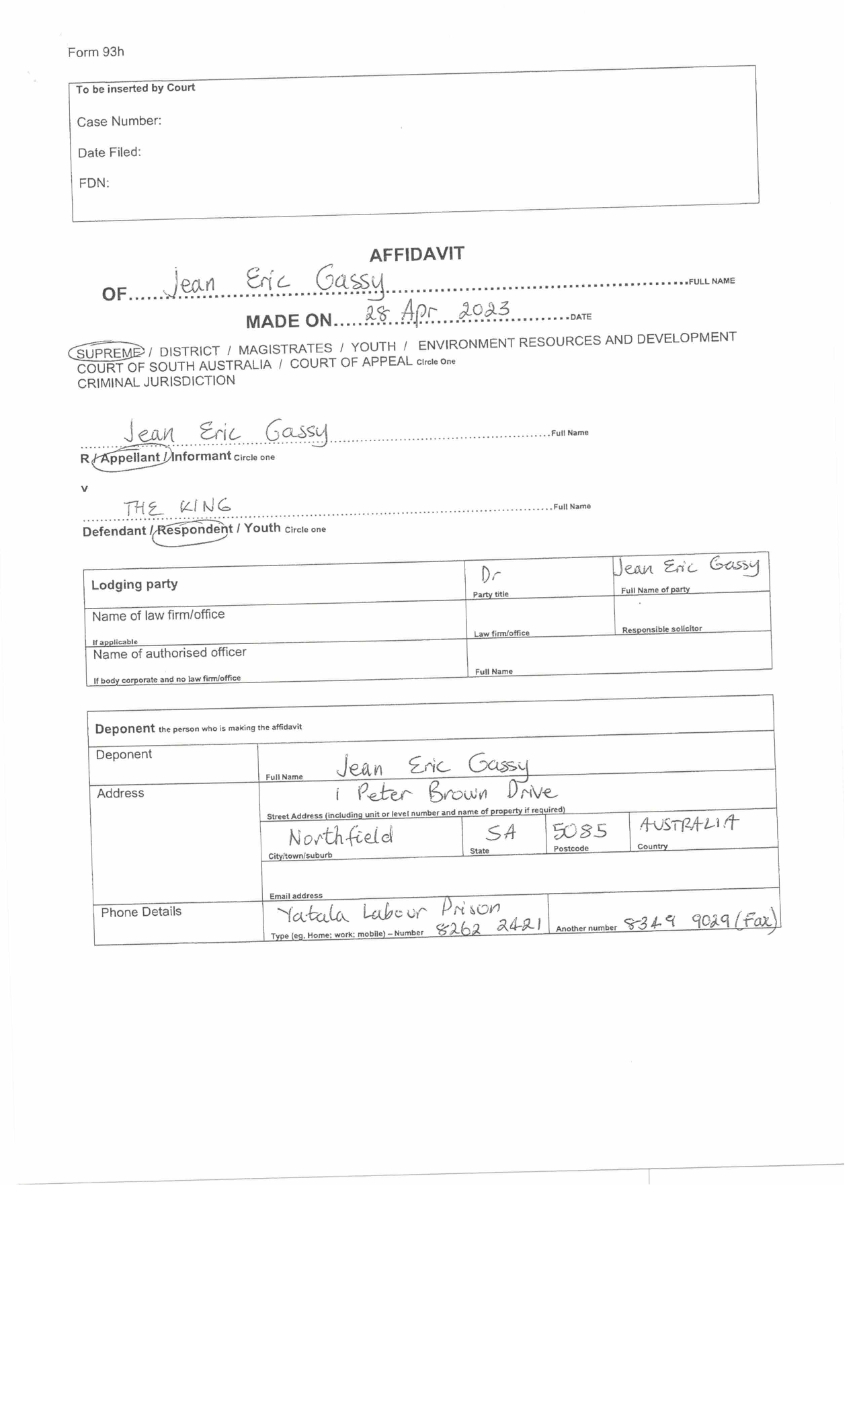 Form 93h
To be inserted by Court
Case Number:
Date Filed:
FDN:
AFFIDAVIT
OF......Jean Eric Gassy......FULL NAME
MADE ON.....28 Apr 2023......DATE
SUPREME / DISTRICT / MAGISTRATES / YOUTH / ENVIRONMENT RESOURCES AND DEVELOPMENT
COURT OF SOUTH AUSTRALIA / COURT OF APPEAL Circle One
CRIMINAL JURISDICTION
Jean Eric Gassy......Full Name
R / Appellant / Informant Circle one
v
THE KING......Full Name
Defendant / Respondent / Youth Circle one
Lodging party Dr Jean Eric Gassy
Party title Full Name of party
Name of law firm/office
If applicable Law firm/office Responsible solicitor
Name of authorised officer
If body corporate and no law firm/office Full Name
Deponent the person who is making the affidavit
Deponent Jean Eric Gassy
Full Name
Address 1 Peter Brown Drive
Street Address (including unit or level number and name of property if required)
Northfield SA 5085 AUSTRALIA
City/town/suburb State Postcode Country
Email address
Phone Details Yatala Labour Prison
Type (eg. Home; work; mobile) – Number 8262 2421 Another number 8349 9029 (Fax)